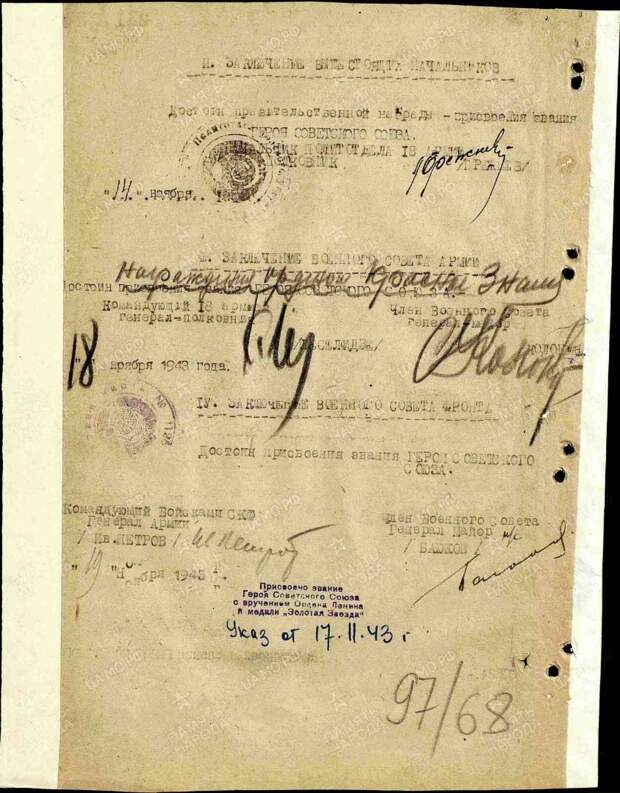 П. ЗАКЛЮЧЕНИЕ ВЫШЕСТОЯЩИХ НАЧАЛЬНИКОВ
Достоин правительственной награды - присвоения звания
ГЕРОЯ СОВЕТСКОГО СОЮЗА.
НАЧАЛЬНИК ПОЛИТОТДЕЛА 18 АРМИИ
ПОЛКОВНИК /БРЕЖНЕВ/
"14" ноября
Ш. ЗАКЛЮЧЕНИЕ ВОЕННОГО СОВЕТА АРМИИ
орденом Красное Знамя
Достоин присвоения СОЮЗА.
Командующий 18 армии Член Военного Совета
генерал-полковник генерал-майор
/ЛЕСЕЛИДЗЕ/ /КОЛОНИН/
"18" ноября 1943 года.
1У. ЗАКЛЮЧЕНИЕ ВОЕННОГО СОВЕТА ФРОНТА
Достоин присвоения звания ГЕРОЯ СОВЕТСКОГО
СОЮЗА.
Командующий Войсками СКФ Член Военного Совета
Генерал Армии Генерал Майор
/ Ив.ПЕТРОВ / /БАЮКОВ /
"19" ноября 1943 г.
Присвоено звание
Герой Советского Союза
с вручением Ордена Ленина
и медали „Золотая Звезда"
Указ от 17.11.43 г
97/68